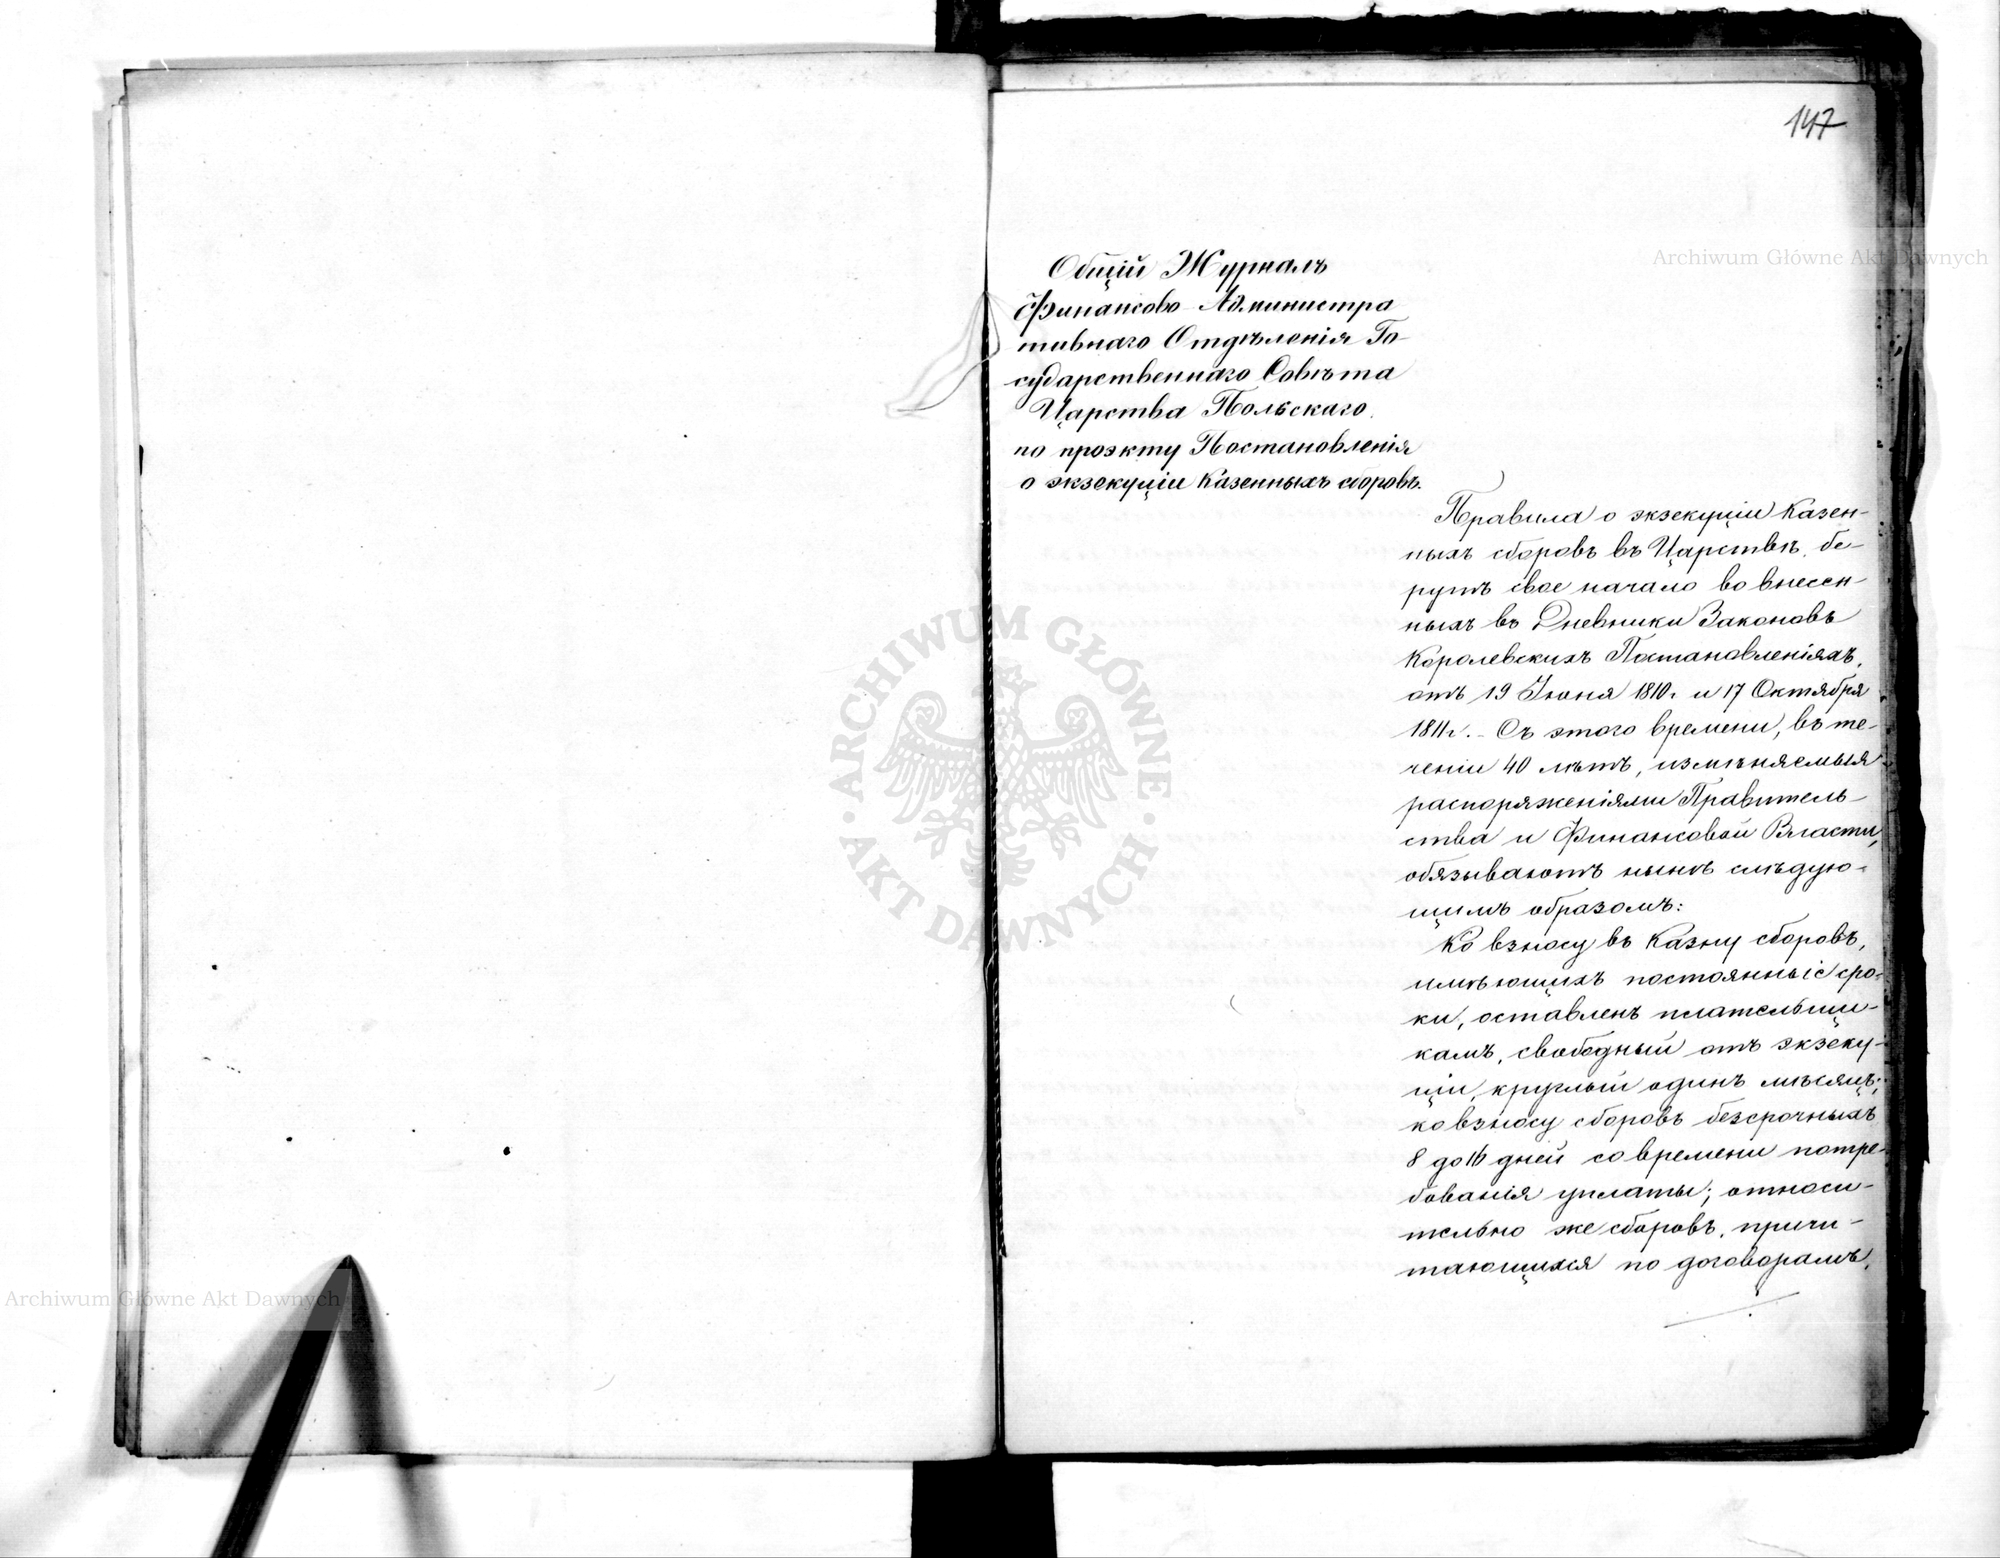 147
Archiwum Główne Akt Dawnych
Общій Журналъ
Финансово-Администра
тивнаго Отдѣленія Го-
сударственнаго Совѣта
Царства Польскаго.
по проэкту Постановленія
о экзекуціи казенныхъ сборовъ.
Правила о экзекуціи казен-
ныхъ сборовъ въ Царствѣ, бе-
рутъ свое начало во внесен-
ныхъ въ Дневники Законовъ
Королевскихъ Постановленіяхъ,
отъ 19 Іюня 1810г. и 17 Октября
1811г. – Съ этого времени, въ те-
ченіи 40 лѣтъ, измѣняемыя
распоряженіями Правитель-
ства и Финансовой Власти,
обязываютъ нынѣ слѣдую-
щимъ образомъ:
Ко взносу въ Казну сборовъ,
имѣющихъ постоянные сро-
ки, оставленъ плательщи-
камъ, свободный отъ экзеку-
ціи, круглый одинъ мѣсяцъ;
ко взносу сборовъ безсрочныхъ
8 до 16 дней со времени потре-
бованія уплаты; относи-
тельно же сборовъ, причи-
тающихся по договорамъ,
ARCHIWUM GŁÓWNE
AKT DAWNYCH
Archiwum Główne Akt Dawnych